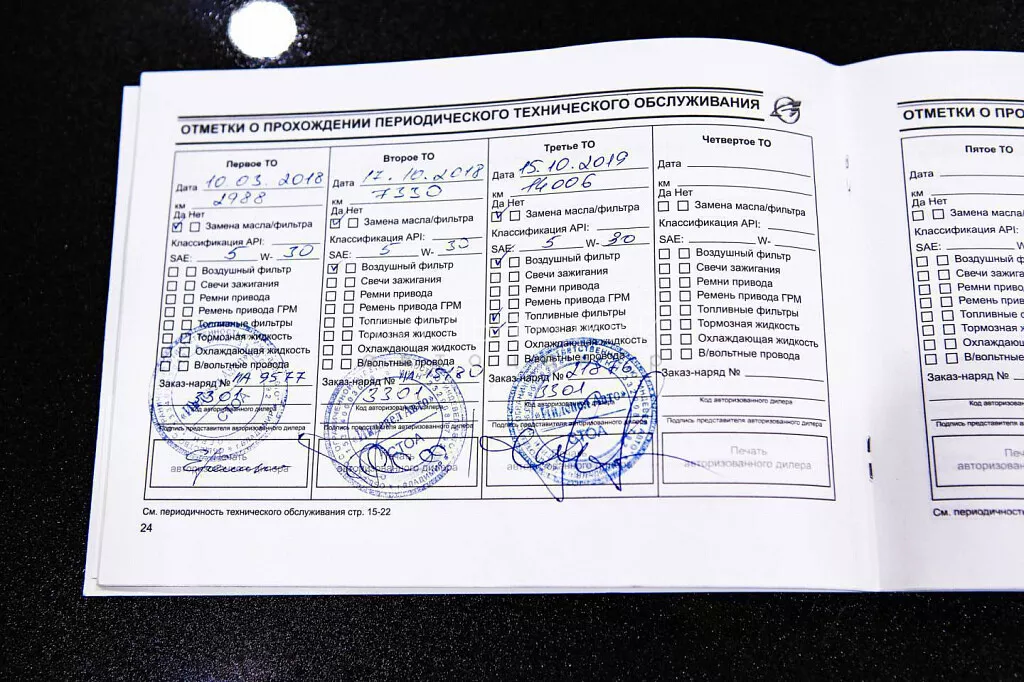 ОТМЕТКИ О ПРОХОЖДЕНИИ ПЕРИОДИЧЕСКОГО ТЕХНИЧЕСКОГО ОБСЛУЖИВАНИЯ
Первое ТО
Дата 10.03.2018
км 2988
Да Нет
Замена масла/фильтра
Классификация API:
SAE: 5 W- 30
Воздушный фильтр
Свечи зажигания
Ремни привода
Ремень привода ГРМ
Топливные фильтры
Тормозная жидкость
Охлаждающая жидкость
В/вольтные провода
Заказ-наряд № НА 9577
3301
Код авторизованного дилера
Подпись представителя авторизованного дилера
Второе ТО
Дата 17.10.2018
км 7330
Да Нет
Замена масла/фильтра
Классификация API:
SAE: 5 W- 30
Воздушный фильтр
Свечи зажигания
Ремни привода
Ремень привода ГРМ
Топливные фильтры
Тормозная жидкость
Охлаждающая жидкость
В/вольтные провода
Заказ-наряд №
3301
Код авторизованного дилера
Подпись представителя авторизованного дилера
СТОА
Третье ТО
Дата 15.10.2019
км 14006
Да Нет
Замена масла/фильтра
Классификация API:
SAE: 5 W- 30
Воздушный фильтр
Свечи зажигания
Ремни привода
Ремень привода ГРМ
Топливные фильтры
Тормозная жидкость
Охлаждающая жидкость
В/вольтные провода
Заказ-наряд №
3301
Код авторизованного дилера
Подпись представителя авторизованного дилера
СТОА
Четвертое ТО
Дата
км
Да Нет
Замена масла/фильтра
Классификация API:
SAE: W-
Воздушный фильтр
Свечи зажигания
Ремни привода
Ремень привода ГРМ
Топливные фильтры
Тормозная жидкость
Охлаждающая жидкость
В/вольтные провода
Заказ-наряд №
Код авторизованного дилера
Подпись представителя авторизованного дилера
Печать
авторизованного дилера
См. периодичность технического обслуживания стр. 15-22
24
ОТМЕТКИ О ПРО
Пятое ТО
Дата
км
Да Нет
Замена масла/ф
Классификация API:
SAE: W-
Воздушный ф
Свечи зажига
Ремни привода
Ремень привод
Топливные фи
Тормозная жи
Охлаждающа
В/вольтные п
Заказ-наряд №
Код авторизованного ди
Подпись представителя авториз
Печ
авторизован
См. периодичност